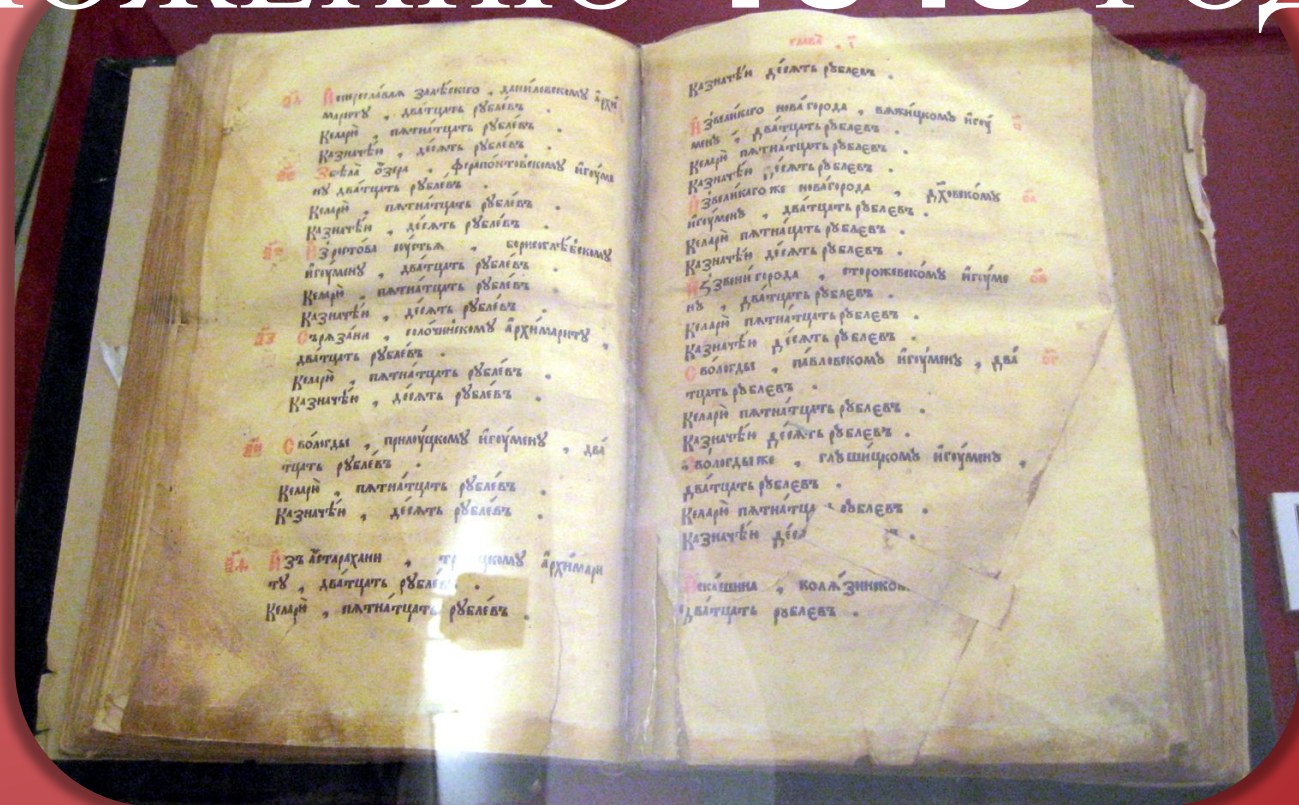 Изпереславля залѣскаго , даниловскому архи
мариту , два́тцать рублевъ .
Келарю , пятна́тцать рублевъ .
Казначѣю , де́сять рублевъ .
Збѣла ѻ҆зера , ферапо́нтовскому игуме
ну два́тцать рублевъ .
Келарю , пятна́тцать рублевъ .
Казначѣю , де́сять рублевъ .
Изросто́ва сустья , борисоглѣ́бскому
игу́мену , два́тцать рублевъ .
Келарю , пятна́тцать рублевъ .
Казначѣю , де́сять рублевъ .
Сърязани , солочинскому архимариту ,
два́тцать рублевъ .
Келарю , пятна́тцать рублевъ .
Казначѣю , де́сять рублевъ .
Свологды , прилоуцкому игу́мену , два́
тцать рублевъ .
Келарю , пятна́тцать рублевъ .
Казначѣю , де́сять рублевъ .
Изъ а҆старахани , архимари
ту , два́тцать рублевъ .
Келарю , пятна́тцать рублевъ .
глава
Казначѣю де́сять рублевъ .
Извеликаго нова́города , вяжицкому игу
мену , два́тцать рублевъ .
Келарю пятна́тцать рублевъ .
Казначѣю де́сять рублевъ .
Извеликаго же нова́города , дх҃овско́му
игу́мену , два́тцать рублевъ .
Келарю пятна́цать рублевъ .
Казначѣю де́сять рублевъ .
Иззвени города , стороже́вско́му игуме
ну , два́тцать рублевъ .
Келарю пятна́тцать рублевъ .
Казначѣю де́сять рублевъ .
Свологды , па́вловскому игу́мену , два́
тцать рублевъ .
Келарю пятна́тцать рублевъ .
Казначѣю де́сять рублевъ .
Свологды же , глушицкому игу́мену ,
два́тцать рублевъ .
Келарю рублевъ .
Казначѣю
Искашина ,
два́тцать рублевъ .